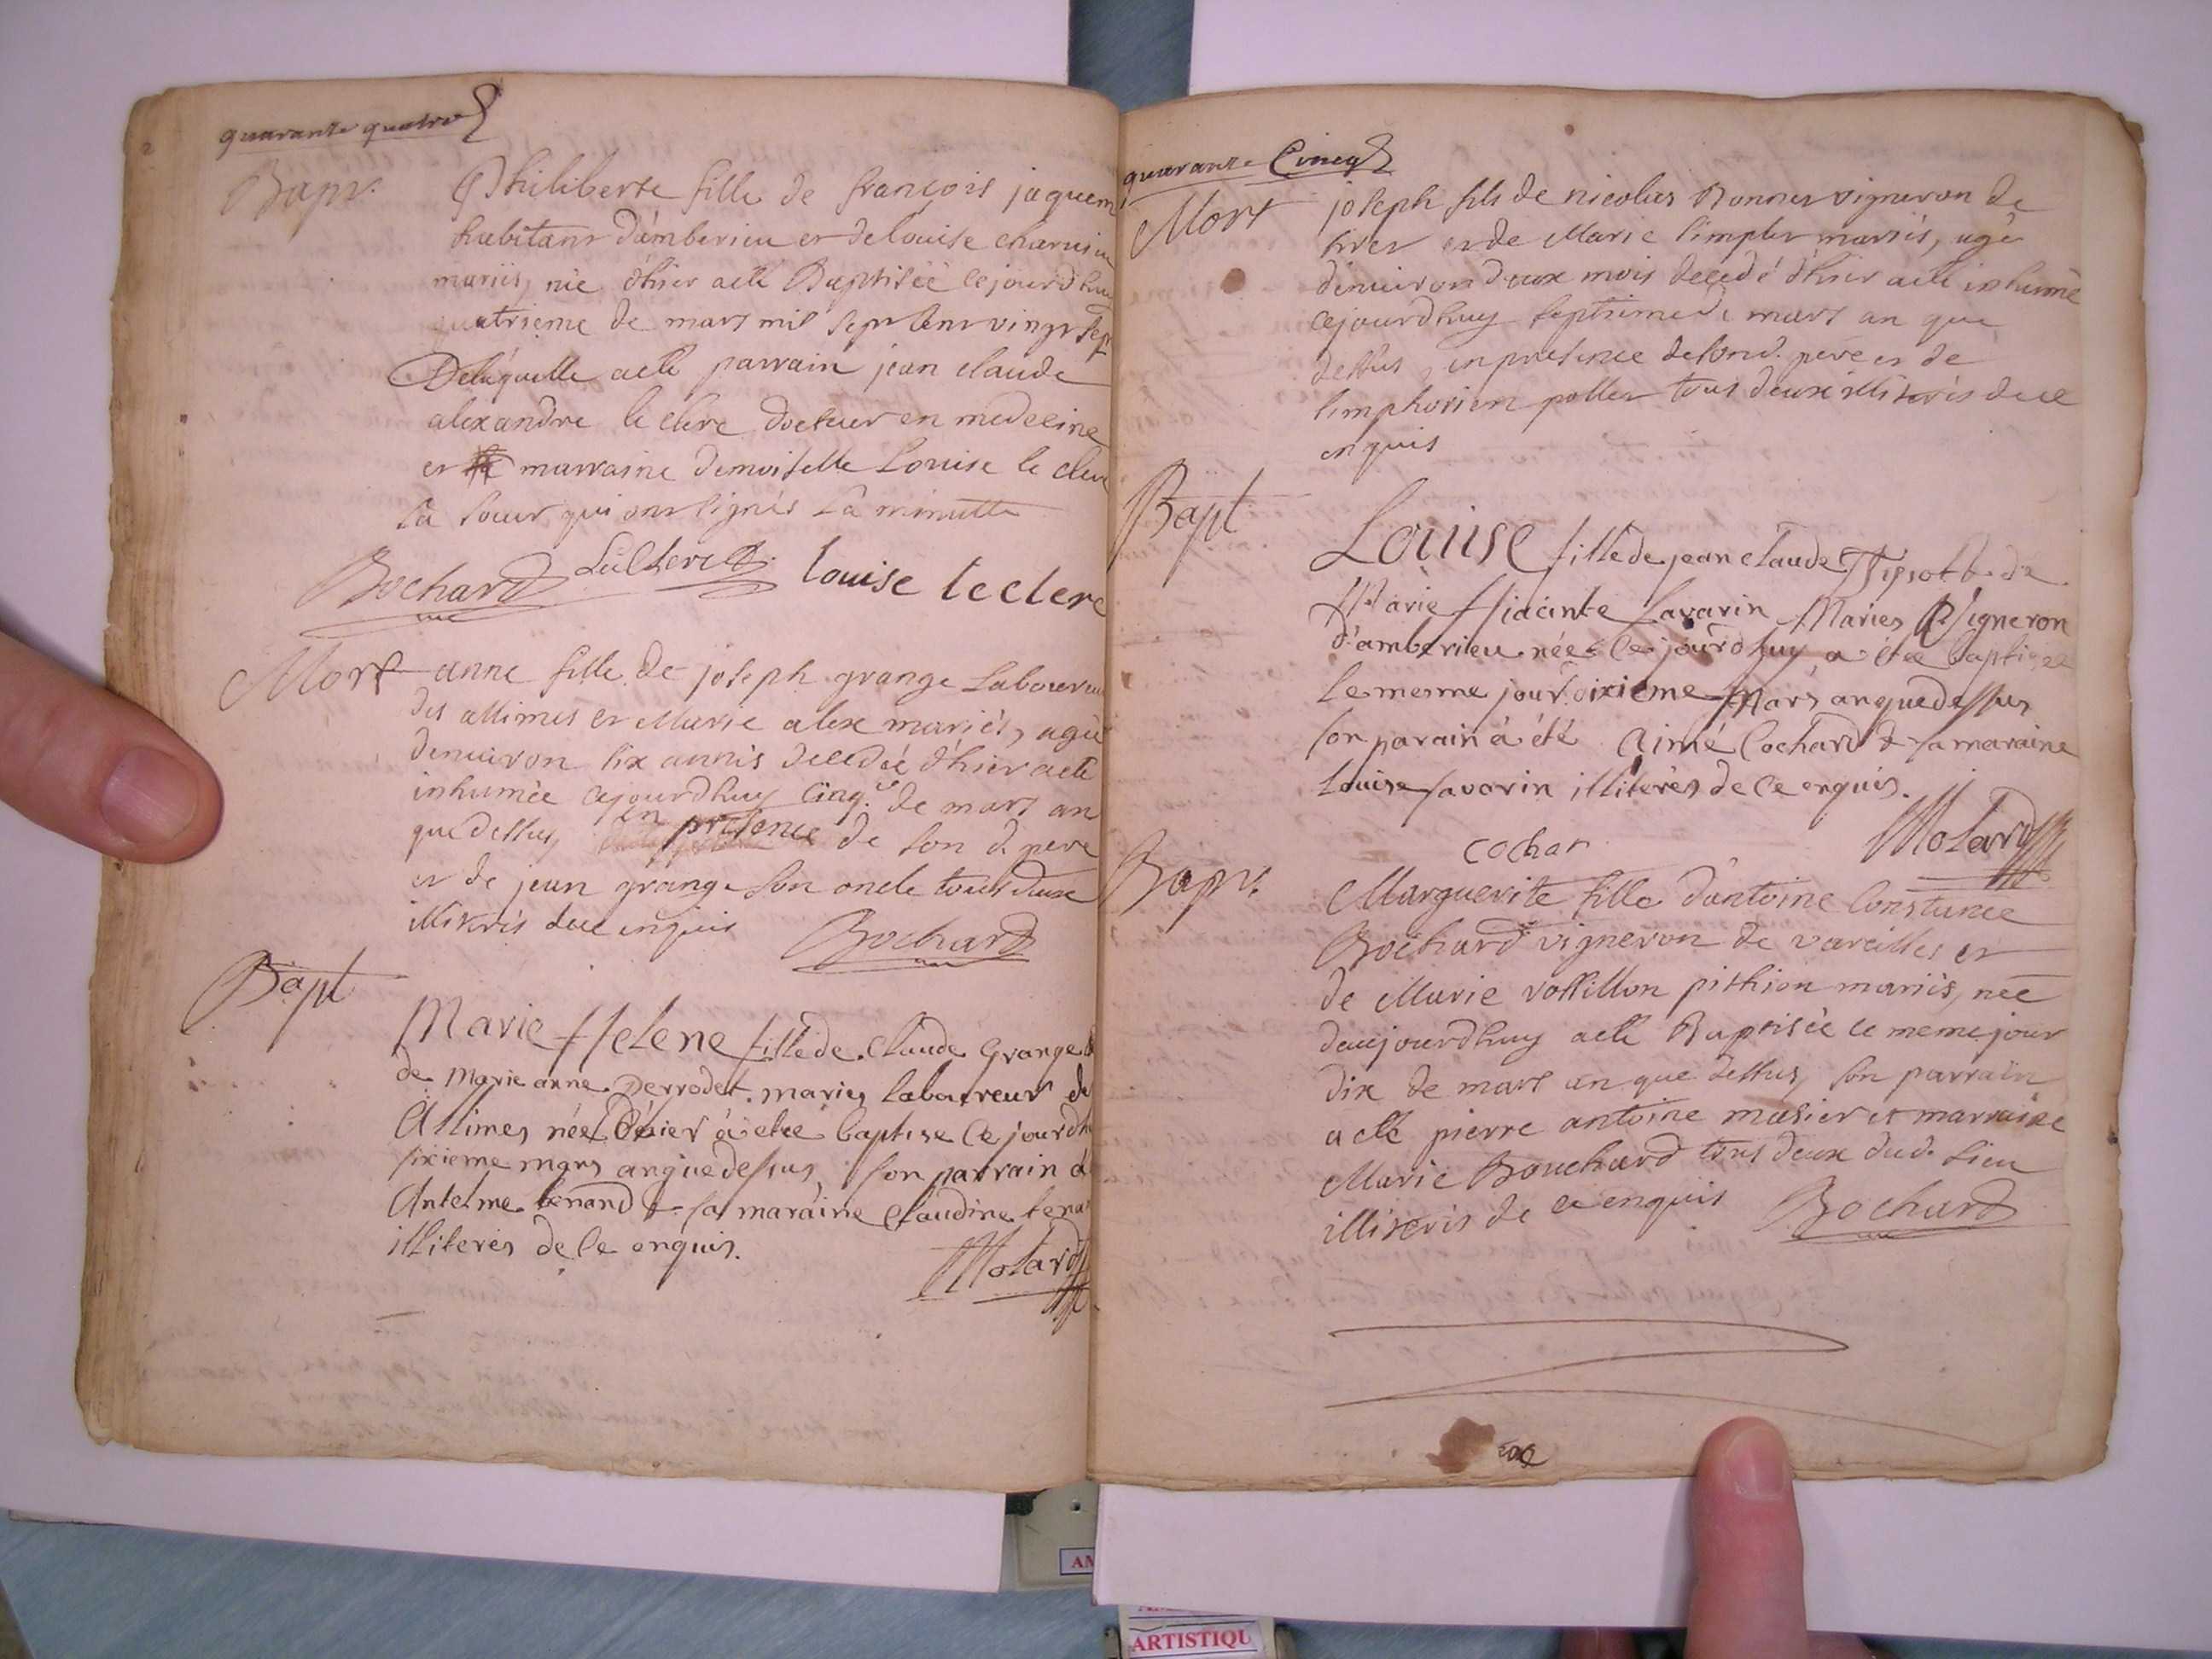 quarante quatre
Bapt.
Philiberte fille de francois jaquem
habitant d'amberieu et de louise charuin
mariés, née d'hier a esté Baptisée cejourdhuy
quatrieme de mars mil sept cent vingt sept
De laquelle a esté parrain jean claude
alexandre le clerc docteur en medecine
et marraine demoiselle Louise le clerc
sa soeur qui ont signés La minutte
Bochard LeClerc louise leclerc
Mort anne fille de joseph grange Laboureur
des allimes et Marie alex mariés, agée
d'environ six années decedée d'hier a esté
inhumée cejourdhuy cinq.e de mars an
que dessus, en presence de son d. pere
et de jean grange son oncle tous deux
illiterés de ce enquis Bochard
Bapt
Marie Helene fille de Claude Grange &
de Marie anne Perrodet maries laboureur des
Allimes née d'hier à etée baptise ce jourdhuy
sixieme mars an que dessus, son parrain à
Antelme tenand & sa maraine Claudine tenan
illiteres de ce enquis.
Molard
quarante Cincq
Mort
joseph fils de nicolas Bonnet vigneron de
tiret et de Marie simplet mariés, agé
d'environ deux mois decedé d'hier a esté inhumé
cejourdhuy septieme de mars an que
dessus, en presence de son d. pere et de
simphorien pollet tous deux illiterés de ce
enquis
Bapt
Louise fille de jean claude Tissot & de
Marie Hiacinte Savarin Maries Vigneron
d'amberieu née ce jourdhuy a étée baptizee
le mesme jour dixieme Mars an que dessus
son parain à été Aimé Cochard & sa maraine
Louise savarin illiterés de ce enquis.
cochar Molard
Bapt.
Marguerite fille d'antoine Constance
Bochard vigneron de vareilles et
de Marie vossillon pithion mariés, née
d'aujourdhuy a esté Baptisée le meme jour
dix de mars an que dessus, son parrain
a esté pierre antoine masier et marraine
Marie Bouchard tous deux dud. lieu
illiterés de ce enquis Bochard